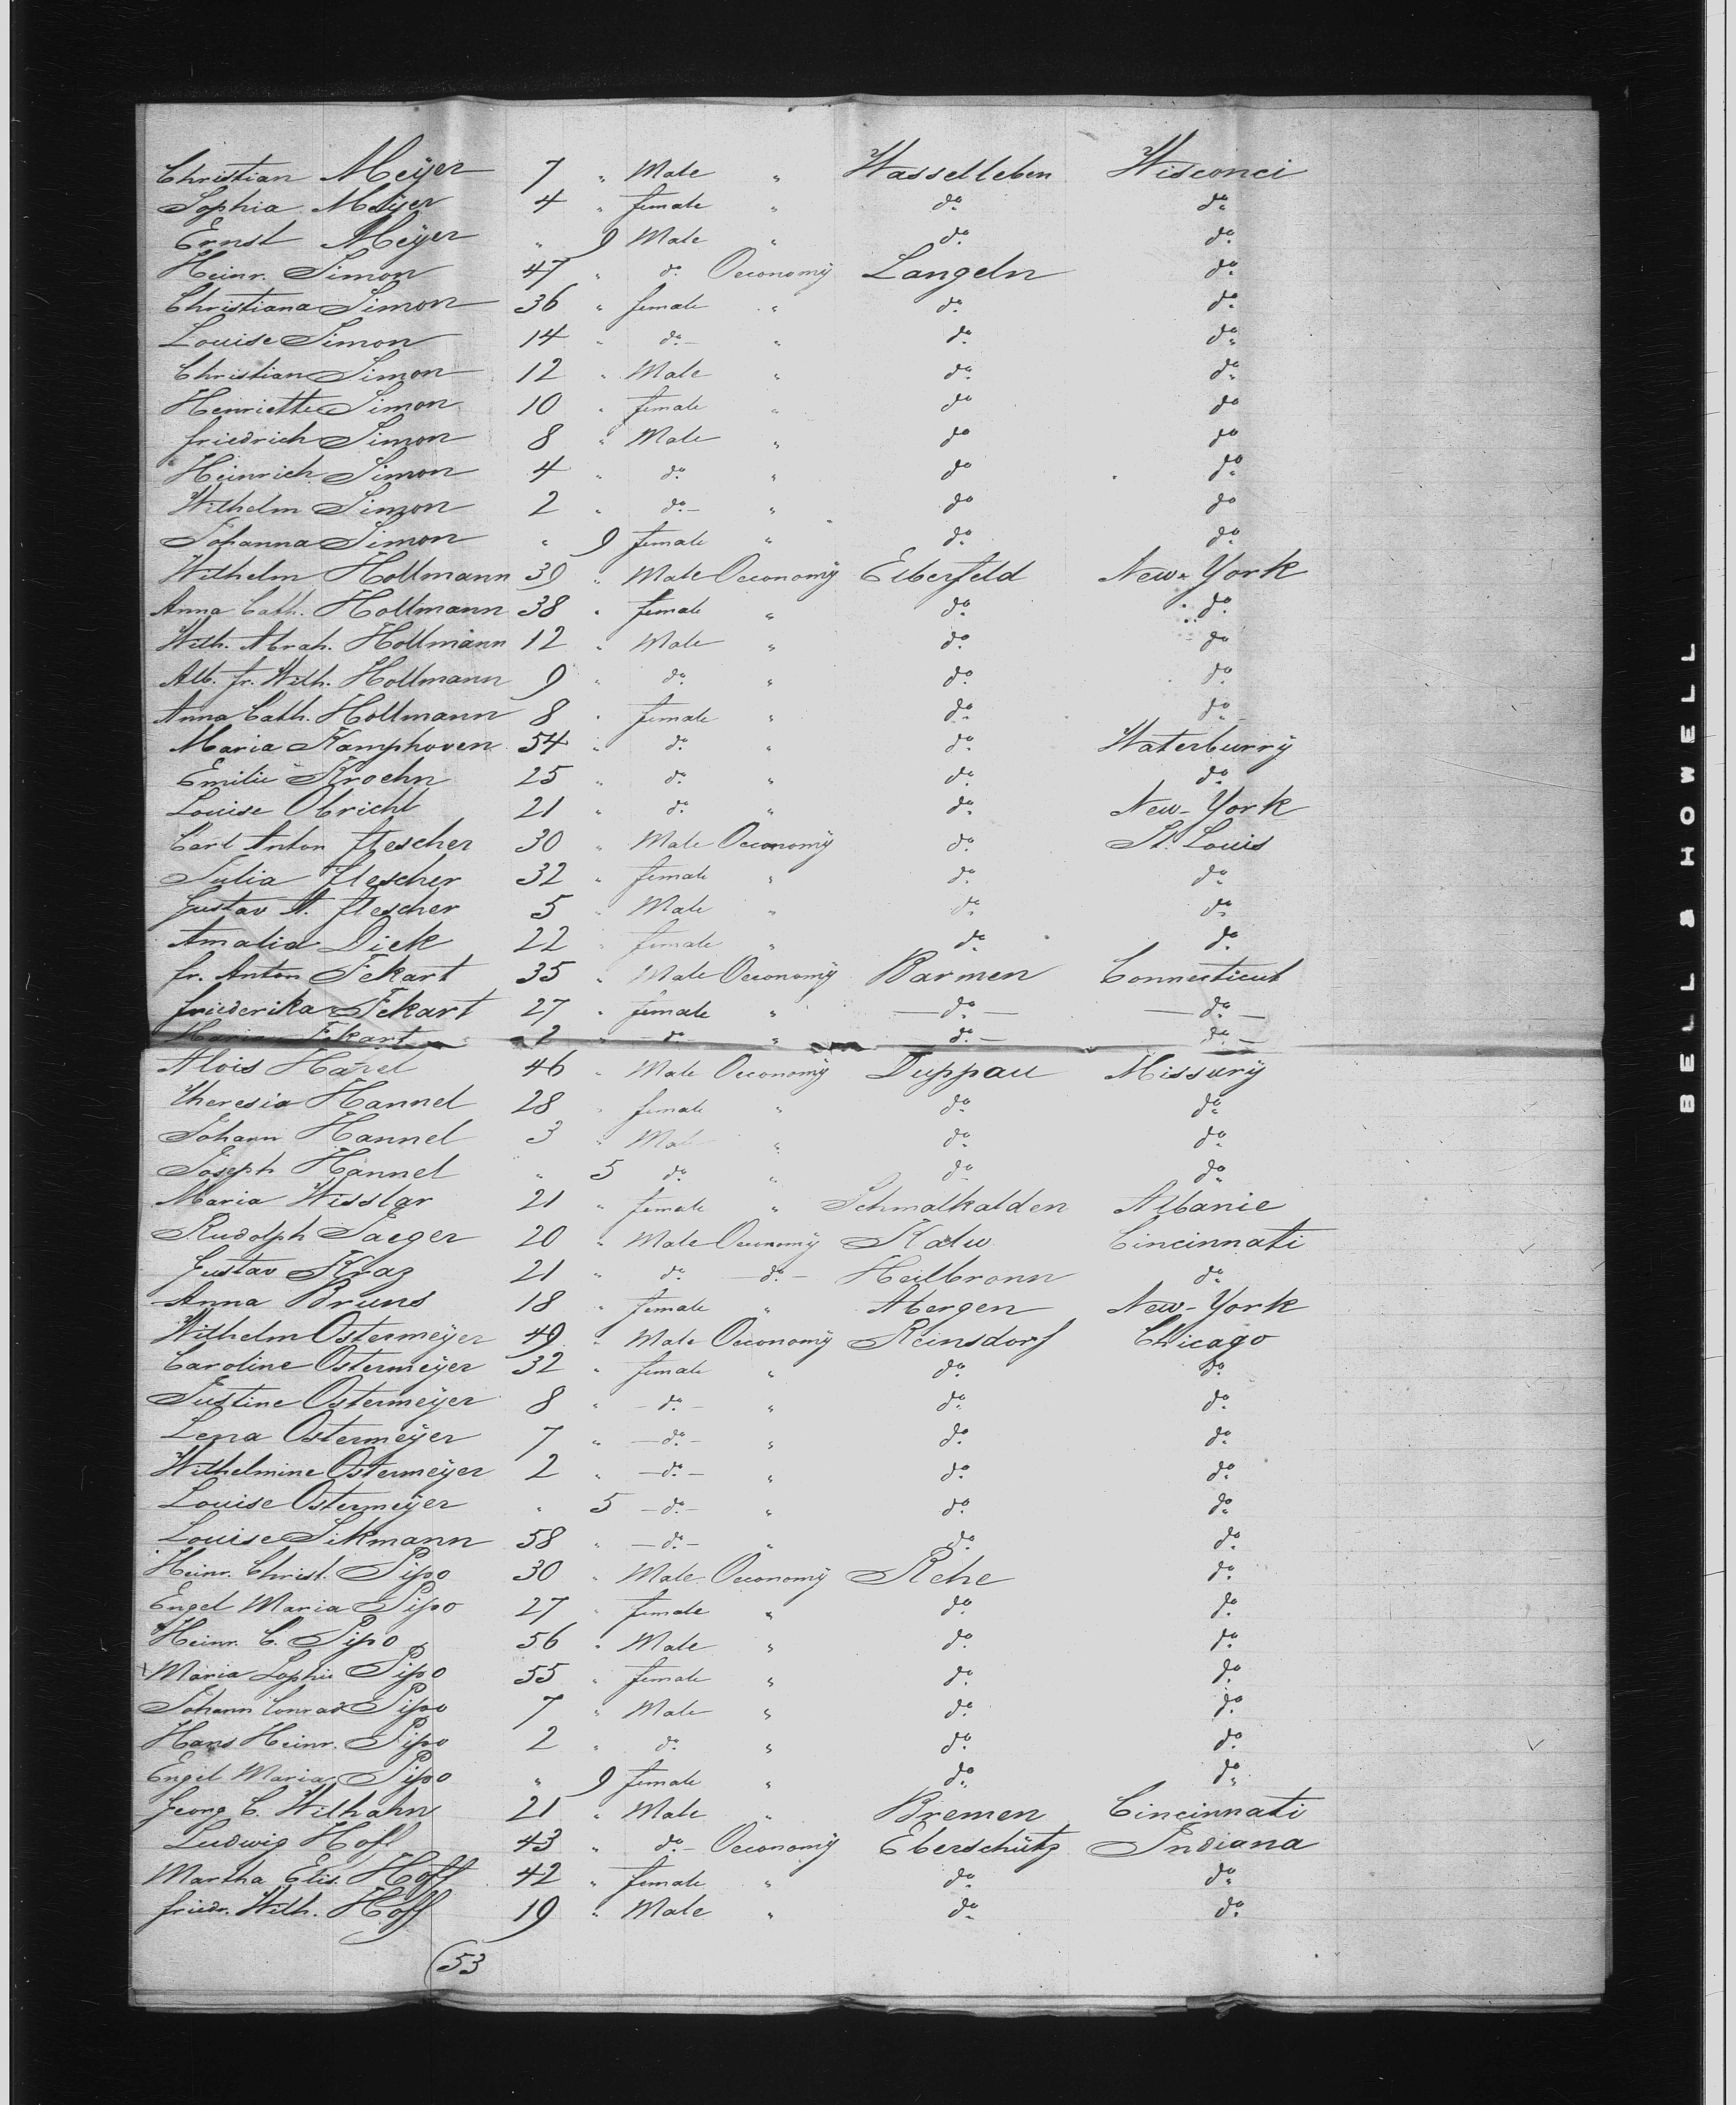 Christian Meÿer 7 " Male " Wasselleben Wisconci
Sophia Meÿer 4 " female " do do
Ernst Meÿer " 9 Male " do do
Heinr. Simon 47 " do Oeconomÿ Langeln do
Christiana Simon 36 " female " do do
Louise Simon 14 " do " do do
Christian Simon 12 " Male " do do
Henriette Simon 10 " female " do do
friedrich Simon 8 " Male " do do
Heinrich Simon 4 " do " do do
Wilhelm Simon 2 " do " do do
Johanna Simon " 9 female " do do
Wilhelm Hollmann 39 " Male Oeconomÿ Elberfeld New-York
Anna Cath. Hollmann 38 " female " do do
Wilh. Abrah. Hollmann 12 " Male " do do
Alb. fr. Wilh. Hollmann 9 " do " do do
Anna Cath. Hollmann 8 " female " do do
Maria Kamphoven 54 " do " do Waterburrÿ
Emilie Kroehn 25 " do " do do
Louise Obricht 21 " do " do New-York
Carl Anton flescher 30 " Male Oeconomÿ do St. Louis
Julia flescher 32 " female " do do
Gustav A. flescher 5 " Male " do do
Amalia Dick 22 " female " do do
fr. Anton Fekart 35 " Male Oeconomÿ Barmen Connecticut
friederika Fekart 27 " female " do do
Maria Fekart 2 " do " do do
Alois Hanel 46 " Male Oeconomÿ Duppau Missurÿ
Theresia Hannel 28 " female " do do
Johann Hannel 3 " Mal " do do
Joseph Hannel " 5 do " do do
Maria Wisslar 21 " female " Schmalkalden Albanie
Rudolph Jaeger 20 " Male Oeconomÿ Kalw Cincinnati
Gustav Kraz 21 " do do Heilbronn do
Anna Bruns 18 " female " Abergen New-York
Wilhelm Ostermeÿer 49 " Male Oeconomÿ Reinsdorf Chicago
Caroline Ostermeÿer 32 " female " do do
Justine Ostermeÿer 8 " do " do do
Lena Ostermeÿer 7 " do " do do
Wilhelmine Ostermeÿer 2 " do " do do
Louise Ostermeÿer " 5 do " do do
Louise Sikmann 58 " do " do do
Heinr. Christ. Pipo 30 " Male Oeconomÿ Rehe do
Engel Maria Pipo 27 " female " do do
Heinr. C. Pipo 56 " Male " do do
Maria Sophie Pipo 55 " female " do do
Johann Conrad Pipo 7 " Male " do do
Hans Heinr. Pipo 2 " do " do do
Engel Maria Pipo " 9 female " do do
Georg C. Wilhahn 21 " Male " Bremen Cincinnati
Ludwig Hoff 43 " do Oeconomÿ Eberschütz Indiana
Martha Elis. Hoff 42 " female " do do
friedr. Wilh. Hoff 19 " Male " do do
53
BELL & HOWELL